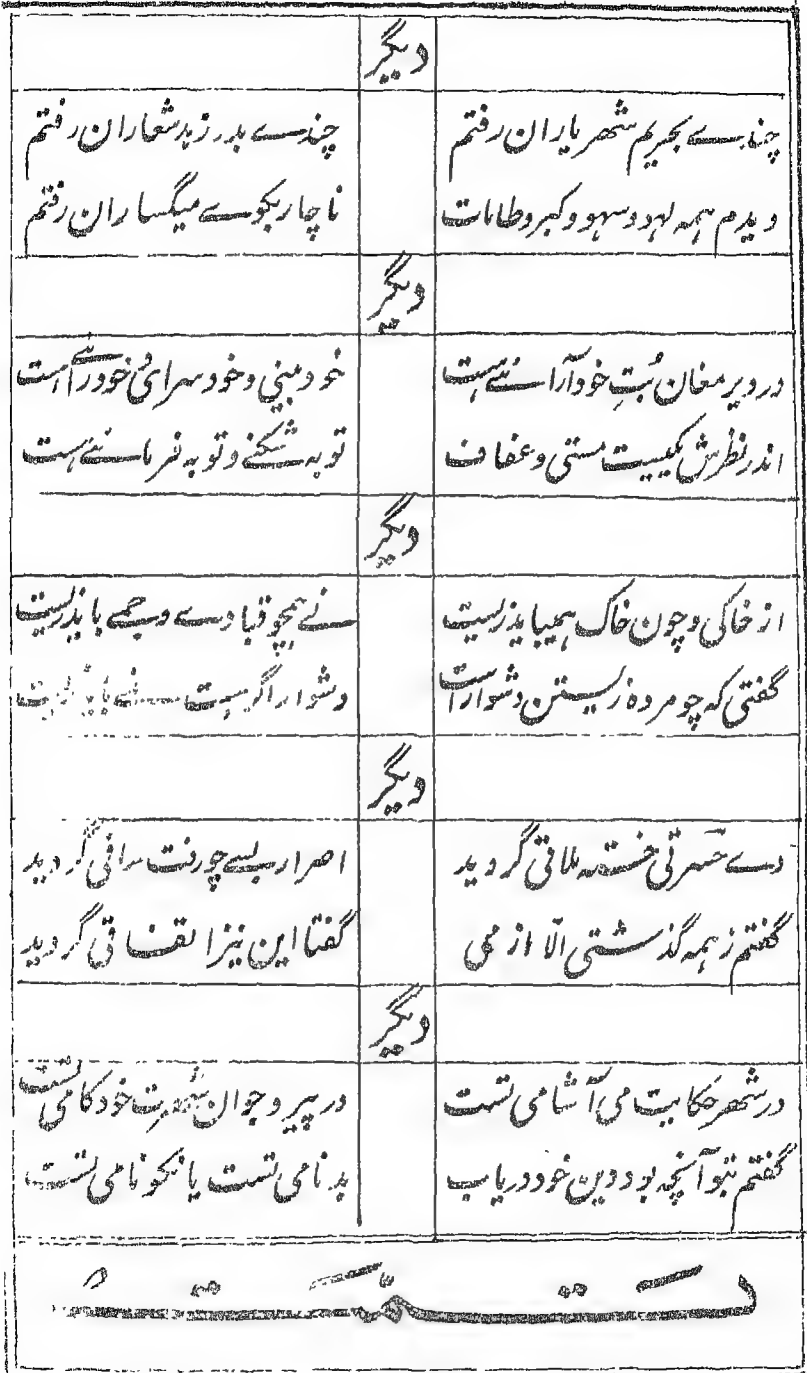 دیگر
چندے بحریم شهر یاران رفتم چندے بدر زہد شعاران رفتم
دیدم ہمہ لہو و سہو و کبر و طامات ناچار بکوے میگساران رفتم
دیگر
در دیر مغان بُتِ خود آرائے ہست خود بینی و خود سرائی و خود رائے ہست
اندر نظرش یکیست مستی و عفاف توبہ شکنے و توبہ فرمائے ہست
دیگر
از خاکی و چون خاک ہمیباید زیست نے ہمچو قباد و جمے باید زیست
گفتی کہ چو مردہ زیستن دشوار است دشوار اگر ہست نمے باید زیست
دیگر
دے حسرتی خستہ ملاقی گردید اصرار بسے چو رفت ساقی گردید
گفتم ز ہمہ گذشتی الّا از می گفتا این نیز اتفاقی گردید
دیگر
در شهر حکایت می آشامی تست در پیر و جوان شُہرت خود کامی تست
گفتم بتو آنچہ بود دین خود دریاب بدنامی تست یا نکو نامی تست
تمت